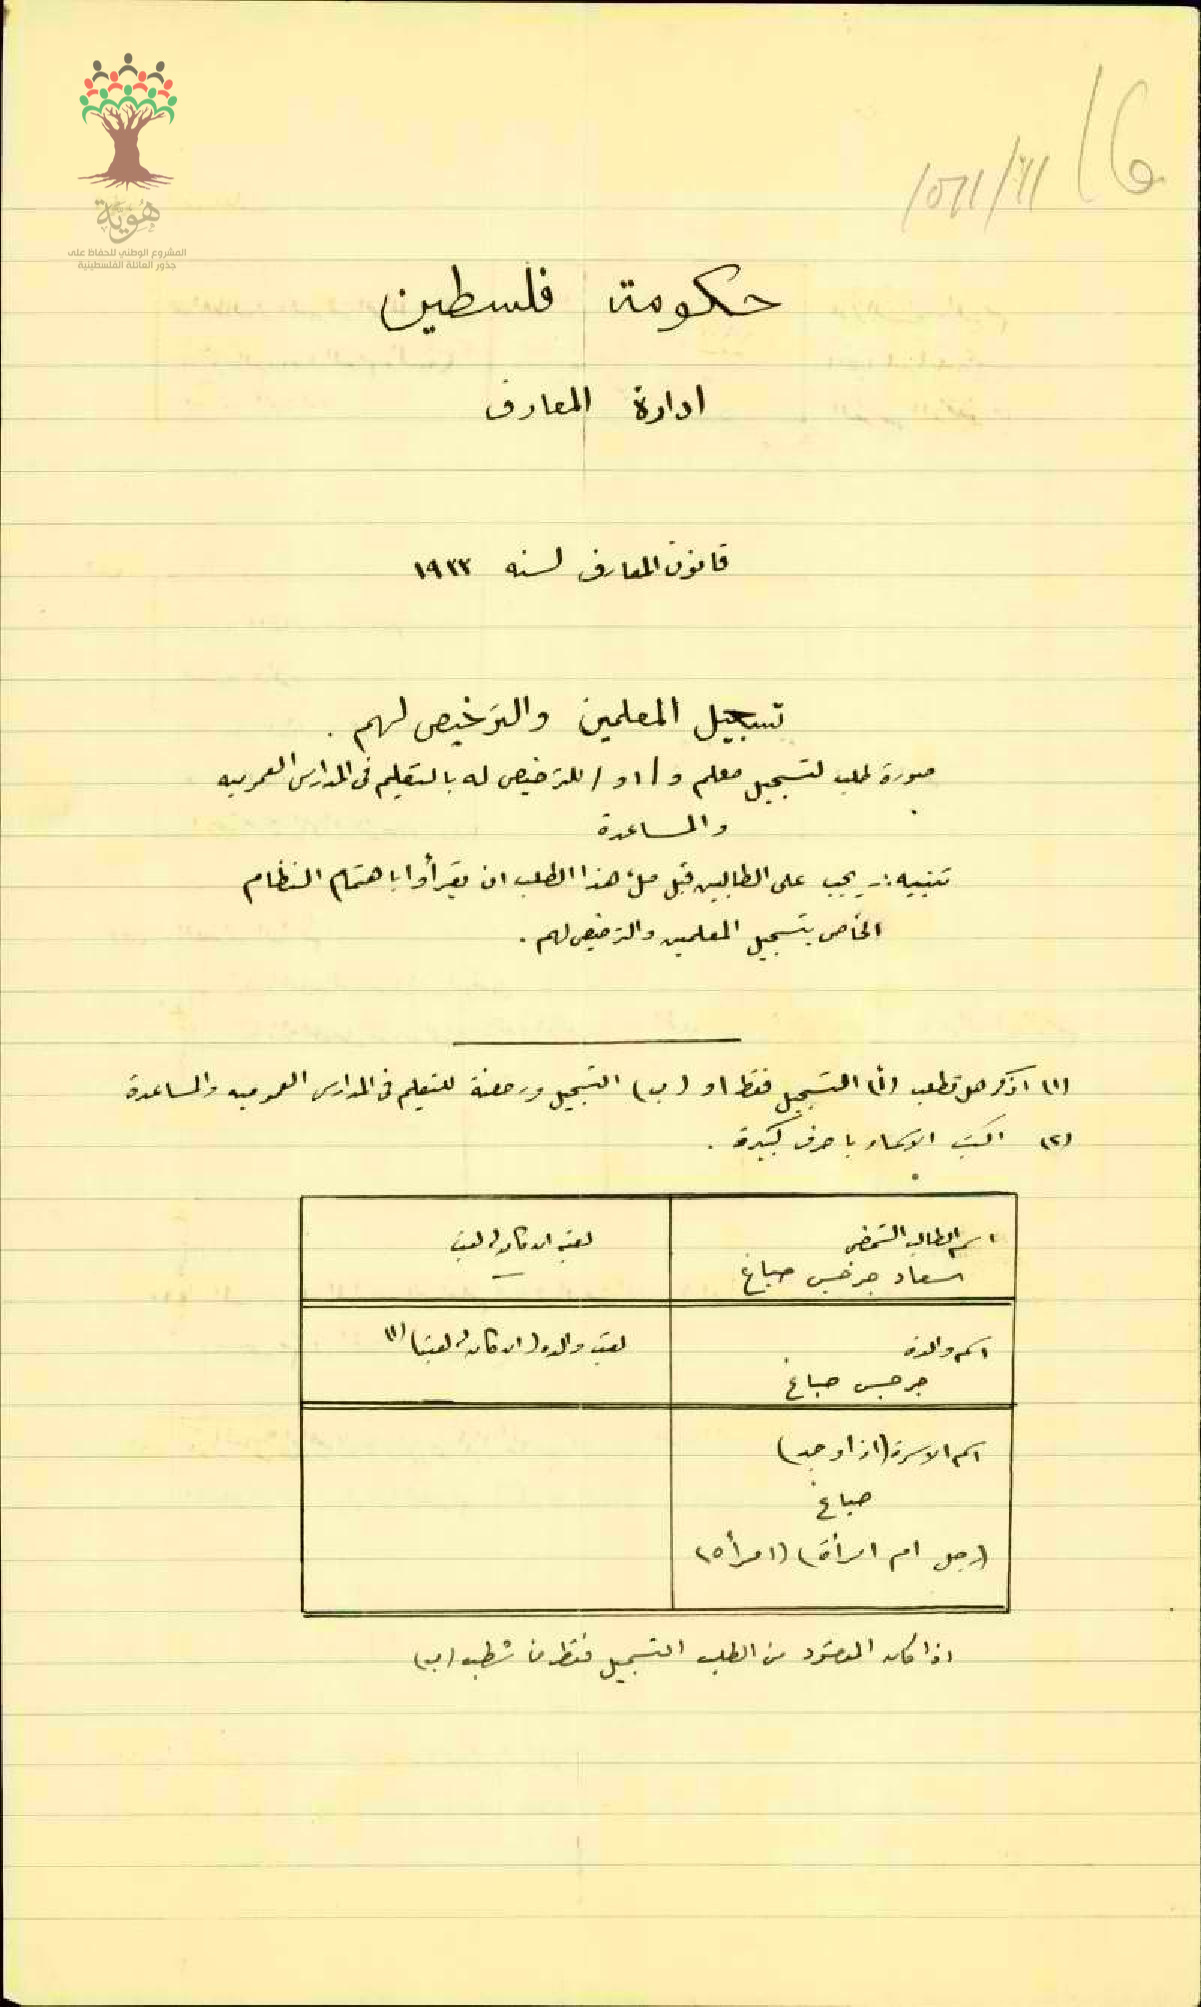 هوية
المشروع الوطني للحفاظ على
جذور العائلة الفلسطينية
حكومة فلسطين
ادارة المعارف
قانون المعارف لسنه ١٩٣٣
تسجيل المعلمين والترخيص لهم .
صورة لطلب لتسجيل معلم و / او / للترخيص له بالتعليم في المدارس العموميه
والمساعدة
تنبيه :ـ يجب على الطالبين قبل ملء هذا الطلب ان يقرأوا باهتمام النظام
الخاص بتسجيل المعلمين والترخيص لهم .
(١) اذكر هل تطلب (أ) التسجيل فقط او (ب) التسجيل ورخصة للتعليم في المدارس العموميه والمساعدة
(٢) اكتب الاسماء باحرف كبيرة .
اسم الطالب الشخصي
لقبه ان كان له لقب
سعاد جرجس صباغ
اسم والده
لقب والده (ان كان له لقب) (١)
جرجس صباغ
اسم الاسرة (اذا وجد)
صباغ
(رجل ام امرأة) (امرأه)
اذا كان المقصود من الطلب التسجيل فقط شطب (ب)